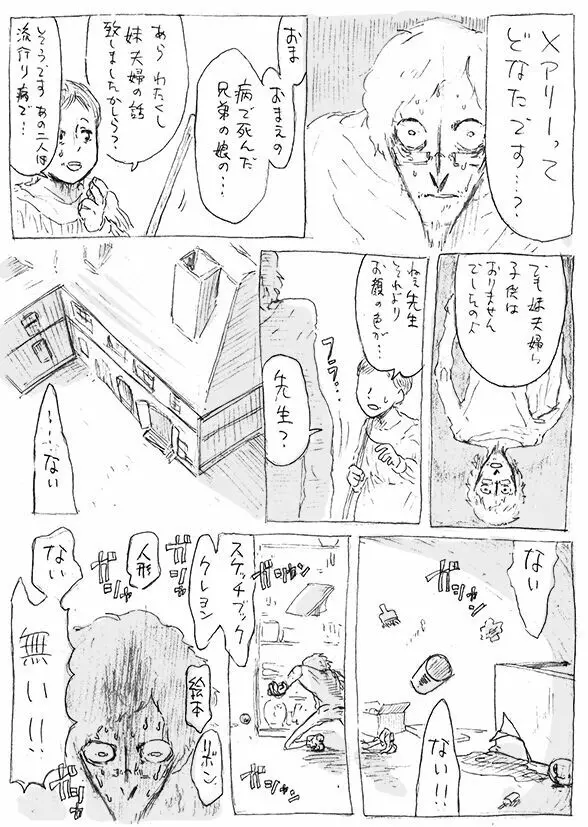 メアリーって
どなたです…?
おま
おまえの
病で死んだ
兄弟の娘の…
あら わたくし
妹夫婦の話
致しましたかしら?
そうです あの二人は
流行り病で…
でも妹夫婦に
子供は
おりません
でしたのよ
ねぇ先生
それより
お顔の色が…
フラ…
先生?
……ない
ない
ガシャ
ない!!
ガシャ
スケッチブック
クレヨン
ガシャ
人形
ガシャ
絵本
リボン
ない
無い!!
ガシャ